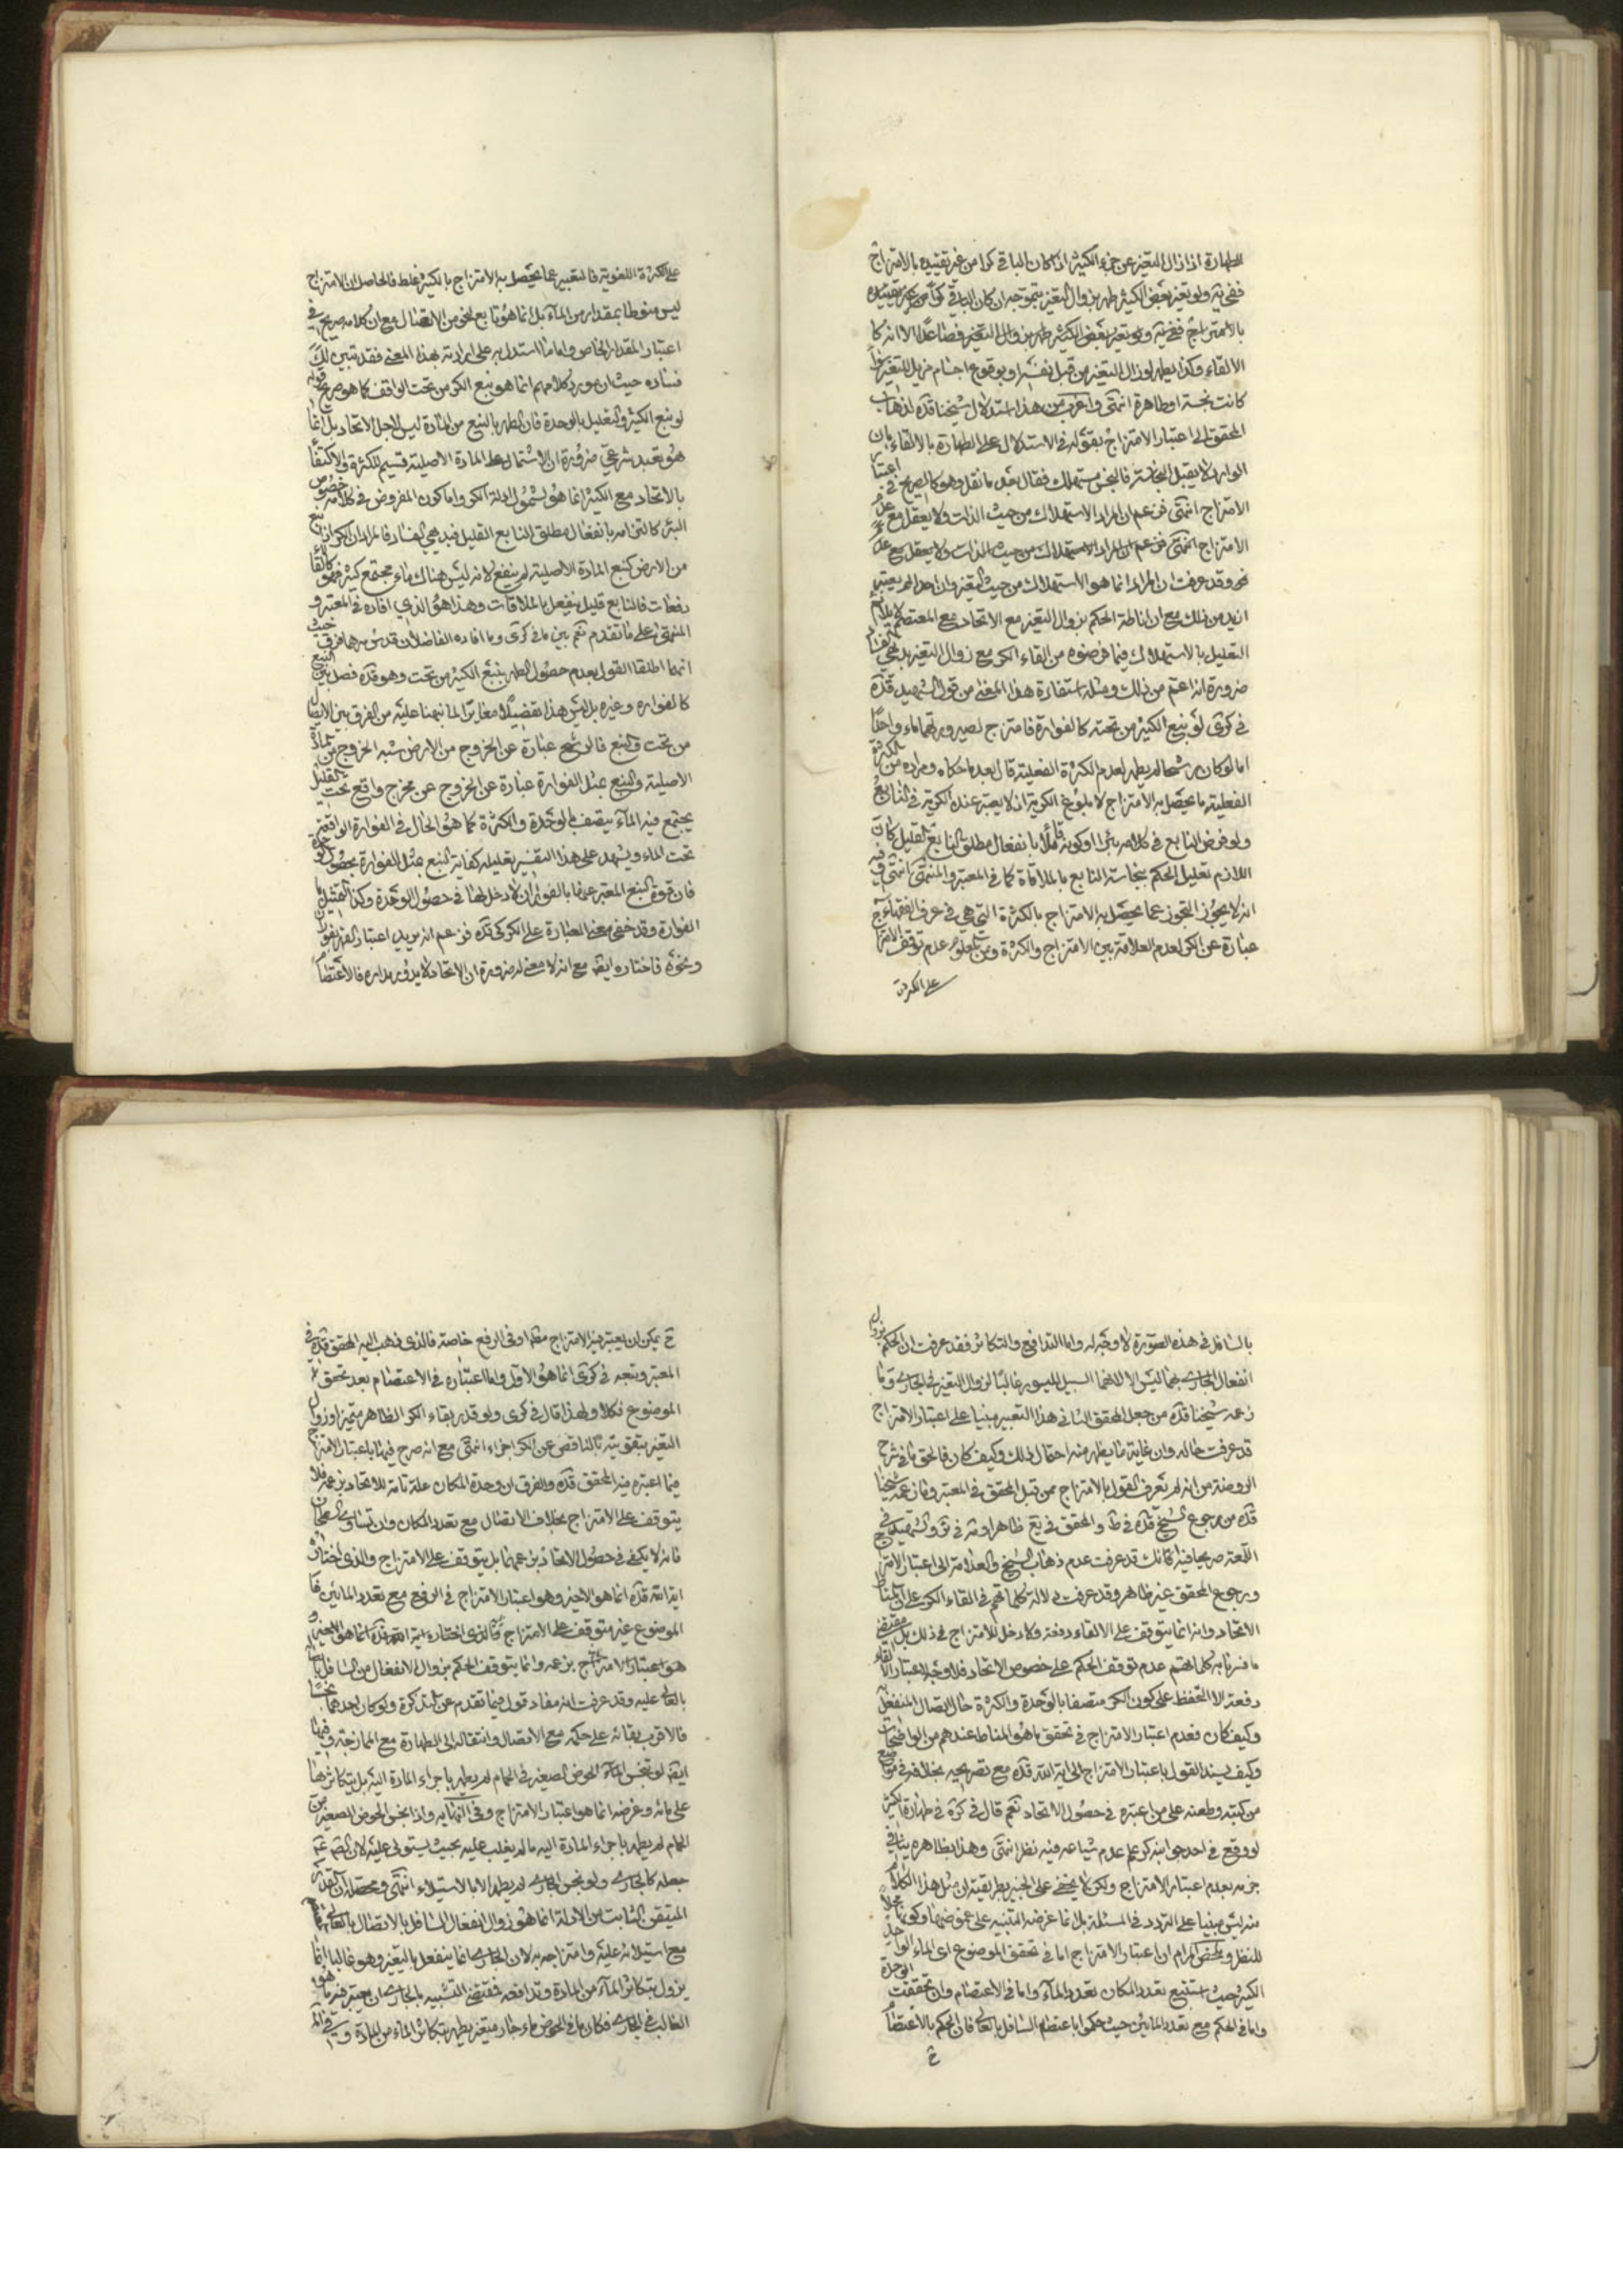 الطهارة اذا زال التغير عن جزء الكثير اذا كان الباقي كرا من غير تقييده بالامتزاج
ففي يه ولو تغير بعض الكثير طهر بزوال التغير بتموجه ان كان الباقي كرا من غير تقييده
بالامتزاج ففي يه ولو تغير بعض الكثير طهر بزوال التغير فصاعدا الا انه كا
الالقاء وكذا يطهر لو زال التغير من قبل نفسه او بوقوع اجسام مزيل للتغير سواء
كانت نجسة او طاهرة انتهى واغرب من هذا استدلال شيخنا قده لذهاب
المحقق الى اعتبار الامتزاج بقوله في الاستدلال على الطهارة بالالقاء بان
الوارد لا يقبل النجاسة فالنجس مستهلك فقال بعد ما نقل وهو كالصريح في اعتبار
الامتزاج انتهى فزعم ان المراد الاستهلاك من حيث الذات ولا يعقل مع عدم
الامتزاج انتهى فزعم ان المراد الاستهلاك من حيث الذات ولا يعقل مع عدم
وقد عرفت ان المراد انما هو الاستهلاك من حيث التغير وان احدا لم يعتبر
ازيد من ذلك مع ان اناطة الحكم بزوال التغير مع الاتحاد مع المعتصم لا يلائم
التعليل بالاستهلاك فيما فرضوه من القاء الكر مع زوال التغير بدفعي
ضرورة انه اعم من ذلك ومثله استفادة هذا المعنى من قول الشهيد قده
في كرى لو نبع الكثير من تحته كالفوارة فامتزج لصيرورتهما ماء واحدا
اما لو كان برشح لم يطهر لعدم الكثرة الفعلية قال بعد ما حكاه ومراده من الكثرة
الفعلية ما يحصل به الامتزاج لا بلوغ الكرية اذ لا يعتبر عنده الكرية في النابع
ولو فرض النابع في كلامه بئرا او كونه قائلا بانفعال مطلق النابع القليل كان
اللازم تعليل الحكم بنجاسة النابع بالملاقاة كما في المعتبر والمنتهى انتهى وفيه
انه لا يجوز التجوز عما يحصل به الامتزاج بالكثرة التي هي في عرف الفقهاء
عبارة عن الكر لعدم العلاقة بين الامتزاج والكثرة ومن المعلوم عدم توقف الامتزاج
على الكثرة
على الكثرة اللغوية فالتعبير عما يحصل به الامتزاج بالكثير غلط فالحاصل ان الامتزاج
ليس منوطا بمقدار من الماء بل انما هو تابع لنحو من الاتصال مع ان كلامه صريح في
اعتبار المقدار الخاص واما ما استدل به على ارادته بهذا المعنى فقد تبين لك
فساده حيث ان مورد كلامهم انما هو نبع الكر من تحت الواقف كما هو صريح قوله
لو نبع الكثير والتعليل بالوحدة فان الطهر بالنبع من المادة ليس لاجل الاتحاد بل انما
هو تعبد شرعي ضرورة ان الاشتمال على المادة الاصلية قسيم للكثرة والاكتفاء
بالاتحاد مع الكثير انما هو لشمول ادلة الكر واما كون المفروض في كلامه خصوص
البئر كالتزامه بانفعال مطلق النابع القليل فبديهي الفساد فالمراد ان الكر اذا نبع
من الارض كنبع المادة الاصلية لم ينفع لانه ليس هناك ماء مجتمع كثير فهو كالقاء
دفعات فالنابع قليل ينفعل بالملاقات وهذا هو الذي افاده في المعتبر و
المنتهى على ما تقدم نعم بين ما في كرى وما افاده الفاضلان قدس سرهما فرق حيث
انهما اطلقا القول بعدم حصول الطهر بنبع الكثير من تحت وهو قده فصل بين النبع
كالفوارة وغيره بل ليس هذا تفصيلا مغايرا لما نبهنا عليه من الفرق بين الاتصال
من تحت والنبع فالرشح عبارة عن الخروج من الارض شبه الخروج من المادة
الاصلية والنبع بمثل الفوارة عبارة عن الخروج عن مخرج واقع تحت القليل
يجتمع فيه الماء يتصف بالوحدة والكثرة كما هو الحال في الفوارة الواقعة
تحت الماء ويشهد على هذا التفسير تعليله كفاية النبع بمثل الفوارة بحصول الوحدة
فان قوة النبع المعتبر عنها بالفوران لا دخل لها في حصول الوحدة وكذا التمثيل
الفوارة وقد خفي معنى العبارة على الكركي قده فزعم انه يريد اعتبار الفوران
ونحوه فاختاره ايض مع انه لا معنى له ضرورة ان الاتحاد لا يدور مداره فالاعتصام
بالسافل في هذه الصورة لا وجه له واما التدافع والتكاثر فقد عرفت ان الحكم بزوال
انفعال الجاري بهما ليس الا لانهما السبيل الميسور غالبا لزوال التغير في الجاري وما
زعمه شيخنا قده من جعل المحقق الثاني هذا التعبير مبنيا على اعتبار الامتزاج
قد عرفت حاله وان غاية ما يظهر منه احتمال ذلك وكيف كان فالحق ما في شرح
الروضة من انه لم نعرف القول بالامتزاج ممن قبل المحقق في المعتبر وما زعمه شيخنا
قده من رجوع الشيخ قده في ط والمحقق في يع ظاهرا وفي ير والشهيد في
اللمعة صريحا فيه فانك قد عرفت عدم ذهاب الشيخ والعلامة الى اعتبار الامتزاج
ورجوع المحقق غير ظاهر وقد عرفت دلالة كلماتهم في القاء الكر على ان المناط
الاتحاد وانه انما يتوقف على الالقاء دفعة ولا دخل للامتزاج في ذلك بل مقتضى
ما فسرنا به كلماتهم عدم توقف الحكم على خصوص الاتحاد فلا وجه لاعتبار الالقاء
دفعة الا التحفظ على كون الكر متصفا بالوحدة والكثرة حال اتصال المنفعل
وكيف كان فعدم اعتبار الامتزاج في تحقق ما هو المناط عندهم من الواضحات
وكيف يسند القول باعتبار الامتزاج الى اية الله قده مع تصريحه بخلافه في مواضع
من كتبه وطعنه على من اعتبره في حصول الاتحاد نعم قال في كره في طهارة الكثير
لو وقع في احد جوانبه كر علم عدم شياعه فيه نظر انتهى وهذا بظاهره ينافي
جزمه بعدم اعتبار الامتزاج ولكن لا يخفى على الخبير بطريقته ان مثل هذا الكلام
منه ليس مبنيا على التردد في المسئلة بل انما غرضه التنبيه على غموضها وكونها محلا
للنظر وملخص المرام ان اعتبار الامتزاج اما في تحقق الموضوع اي الماء الواحد
الكثير حيث استتبع تعدد المكان تعدد الماء واما في الاعتصام وان تحققت الوحدة
واما في الحكم مع تعدد المائين حيث حكموا باعتصام السافل بالعالي فان الحكم بالاعتصام
ح
ح يمكن ان يعتبر فيه الامتزاج مطلقا او في الرفع خاصة فالذي ذهب اليه المحقق قده في
المعتبر وتبعه في كرى انما هو الاول واما اعتباره في الاعتصام بعد تحقق
الموضوع فكلا ولهذا قال في كرى ولو قدر بقاء الكر الظاهر متميزا وزوال
التغير بتقويته بالناقص عن الكر اجزاء انتهى مع انه صرح فيها باعتبار الامتزاج
فيما اعتبره فيه المحقق قده والفرق ان وحدة المكان علة تامة للاتحاد بزعمه فلا
يتوقف على الامتزاج بخلاف الاتصال مع تعدد المكان وان تساوى السطحان
فانه لا يكفي في حصول الاتحاد بزعمهما بل يتوقف على الامتزاج والذي اختاره
اية الله قده انما هو الاخير وهو اعتبار الامتزاج في الرفع مع تعدد المائين
الموضوع غير متوقف على الامتزاج فالذي اختاره اية الله قده انما هو الاخير و
هو اعتبار الامتزاج بزعمه وانما يتوقف الحكم بزوال الانفعال من السافل
بالعالي عليه وقد عرفت انه مفاد قوله فيما تقدم عن التذكرة ولو كان احدهما نجسا
فالاقرب بقائه على حكمه مع الاتصال وانتقاله الى الطهارة مع الممازجة وفيها
ايض لو تنجس الماء الحوض الصغير في الحمام لم يطهر باجراء المادة اليه بل بتكاثرها
على مائه وغرضه انما هو اعتبار الامتزاج وفي النهاية واذا نجس الحوض الصغير من
الحمام لم يطهر باجراء المادة اليه ما لم يغلب عليه بحيث يستولي عليه لان الصم ع
جعله كالجاري ولو نجس الجاري لم يطهر الا بالاستيلاء انتهى ومحصله ان القدر
المتيقن الثابت من الادلة انما هو زوال انفعال السافل بالاتصال بالعالي
مع استيلائه عليه وامتزاجه به لان الجاري انما ينفعل بالتغير وهو غالبا انما
يزول بتكاثر الماء من المادة وتدافعه فمقتضى التشبيه بالجاري ان يعتبر فيه ما هو
الغالب في الجاري فكان ما في الحوض ماء جار متغير يطهر بتكاثر الماء من المادة و